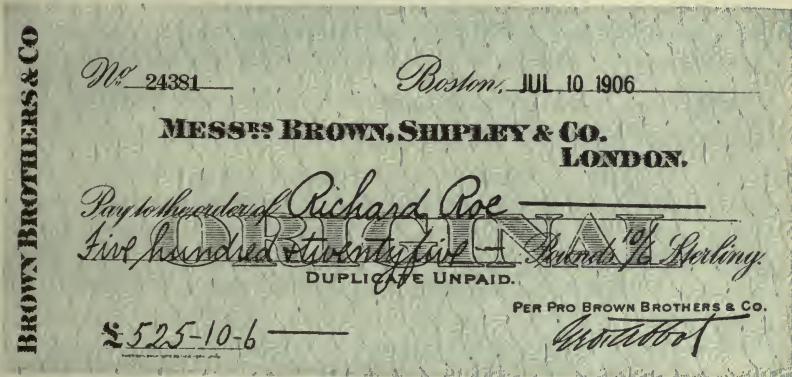 BROWN BROTHERS & CO
No. 24381 Boston, JUL 10 1906
MESSRS BROWN, SHIPLEY & CO.
LONDON.
Pay to the order of Richard Roe
ORIGINAL
Five hundred & twenty five Pounds 10/6 Sterling.
DUPLICATE UNPAID.
PER PRO BROWN BROTHERS & CO.
£ 525-10-6